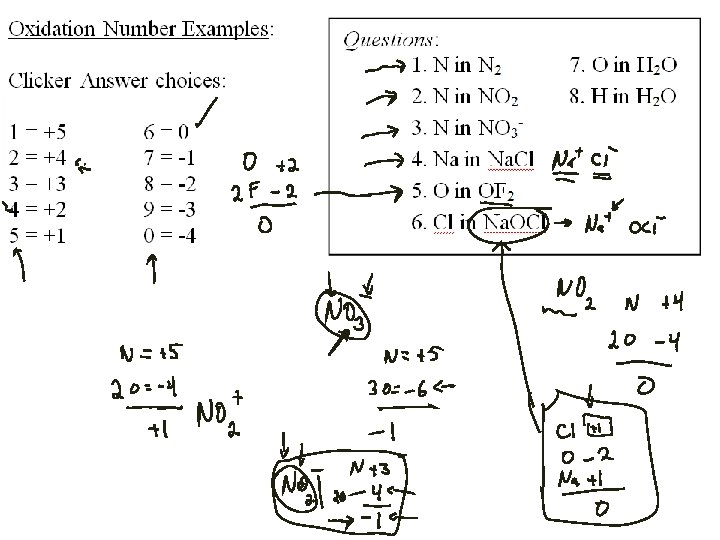 Oxidation Number Examples:
Clicker Answer choices:
1 = +5
2 = +4
3 = +3
4 = +2
5 = +1
6 = 0
7 = -1
8 = -2
9 = -3
0 = -4
O +2
2F -2
0
Questions:
1. N in N₂
2. N in NO₂
3. N in NO₃⁻
4. Na in NaCl Na⁺ Cl⁻
5. O in OF₂
6. Cl in NaOCl → Na⁺ OCl⁻
7. O in H₂O
8. H in H₂O
NO₃
NO₂ N +4
2O -4
0
N = +5
2O = -4
+1 NO₂⁺
N = +5
3O = -6
-1
NO₂⁻
N +3
2O - 4
-1
Cl +1
O -2
Na +1
0